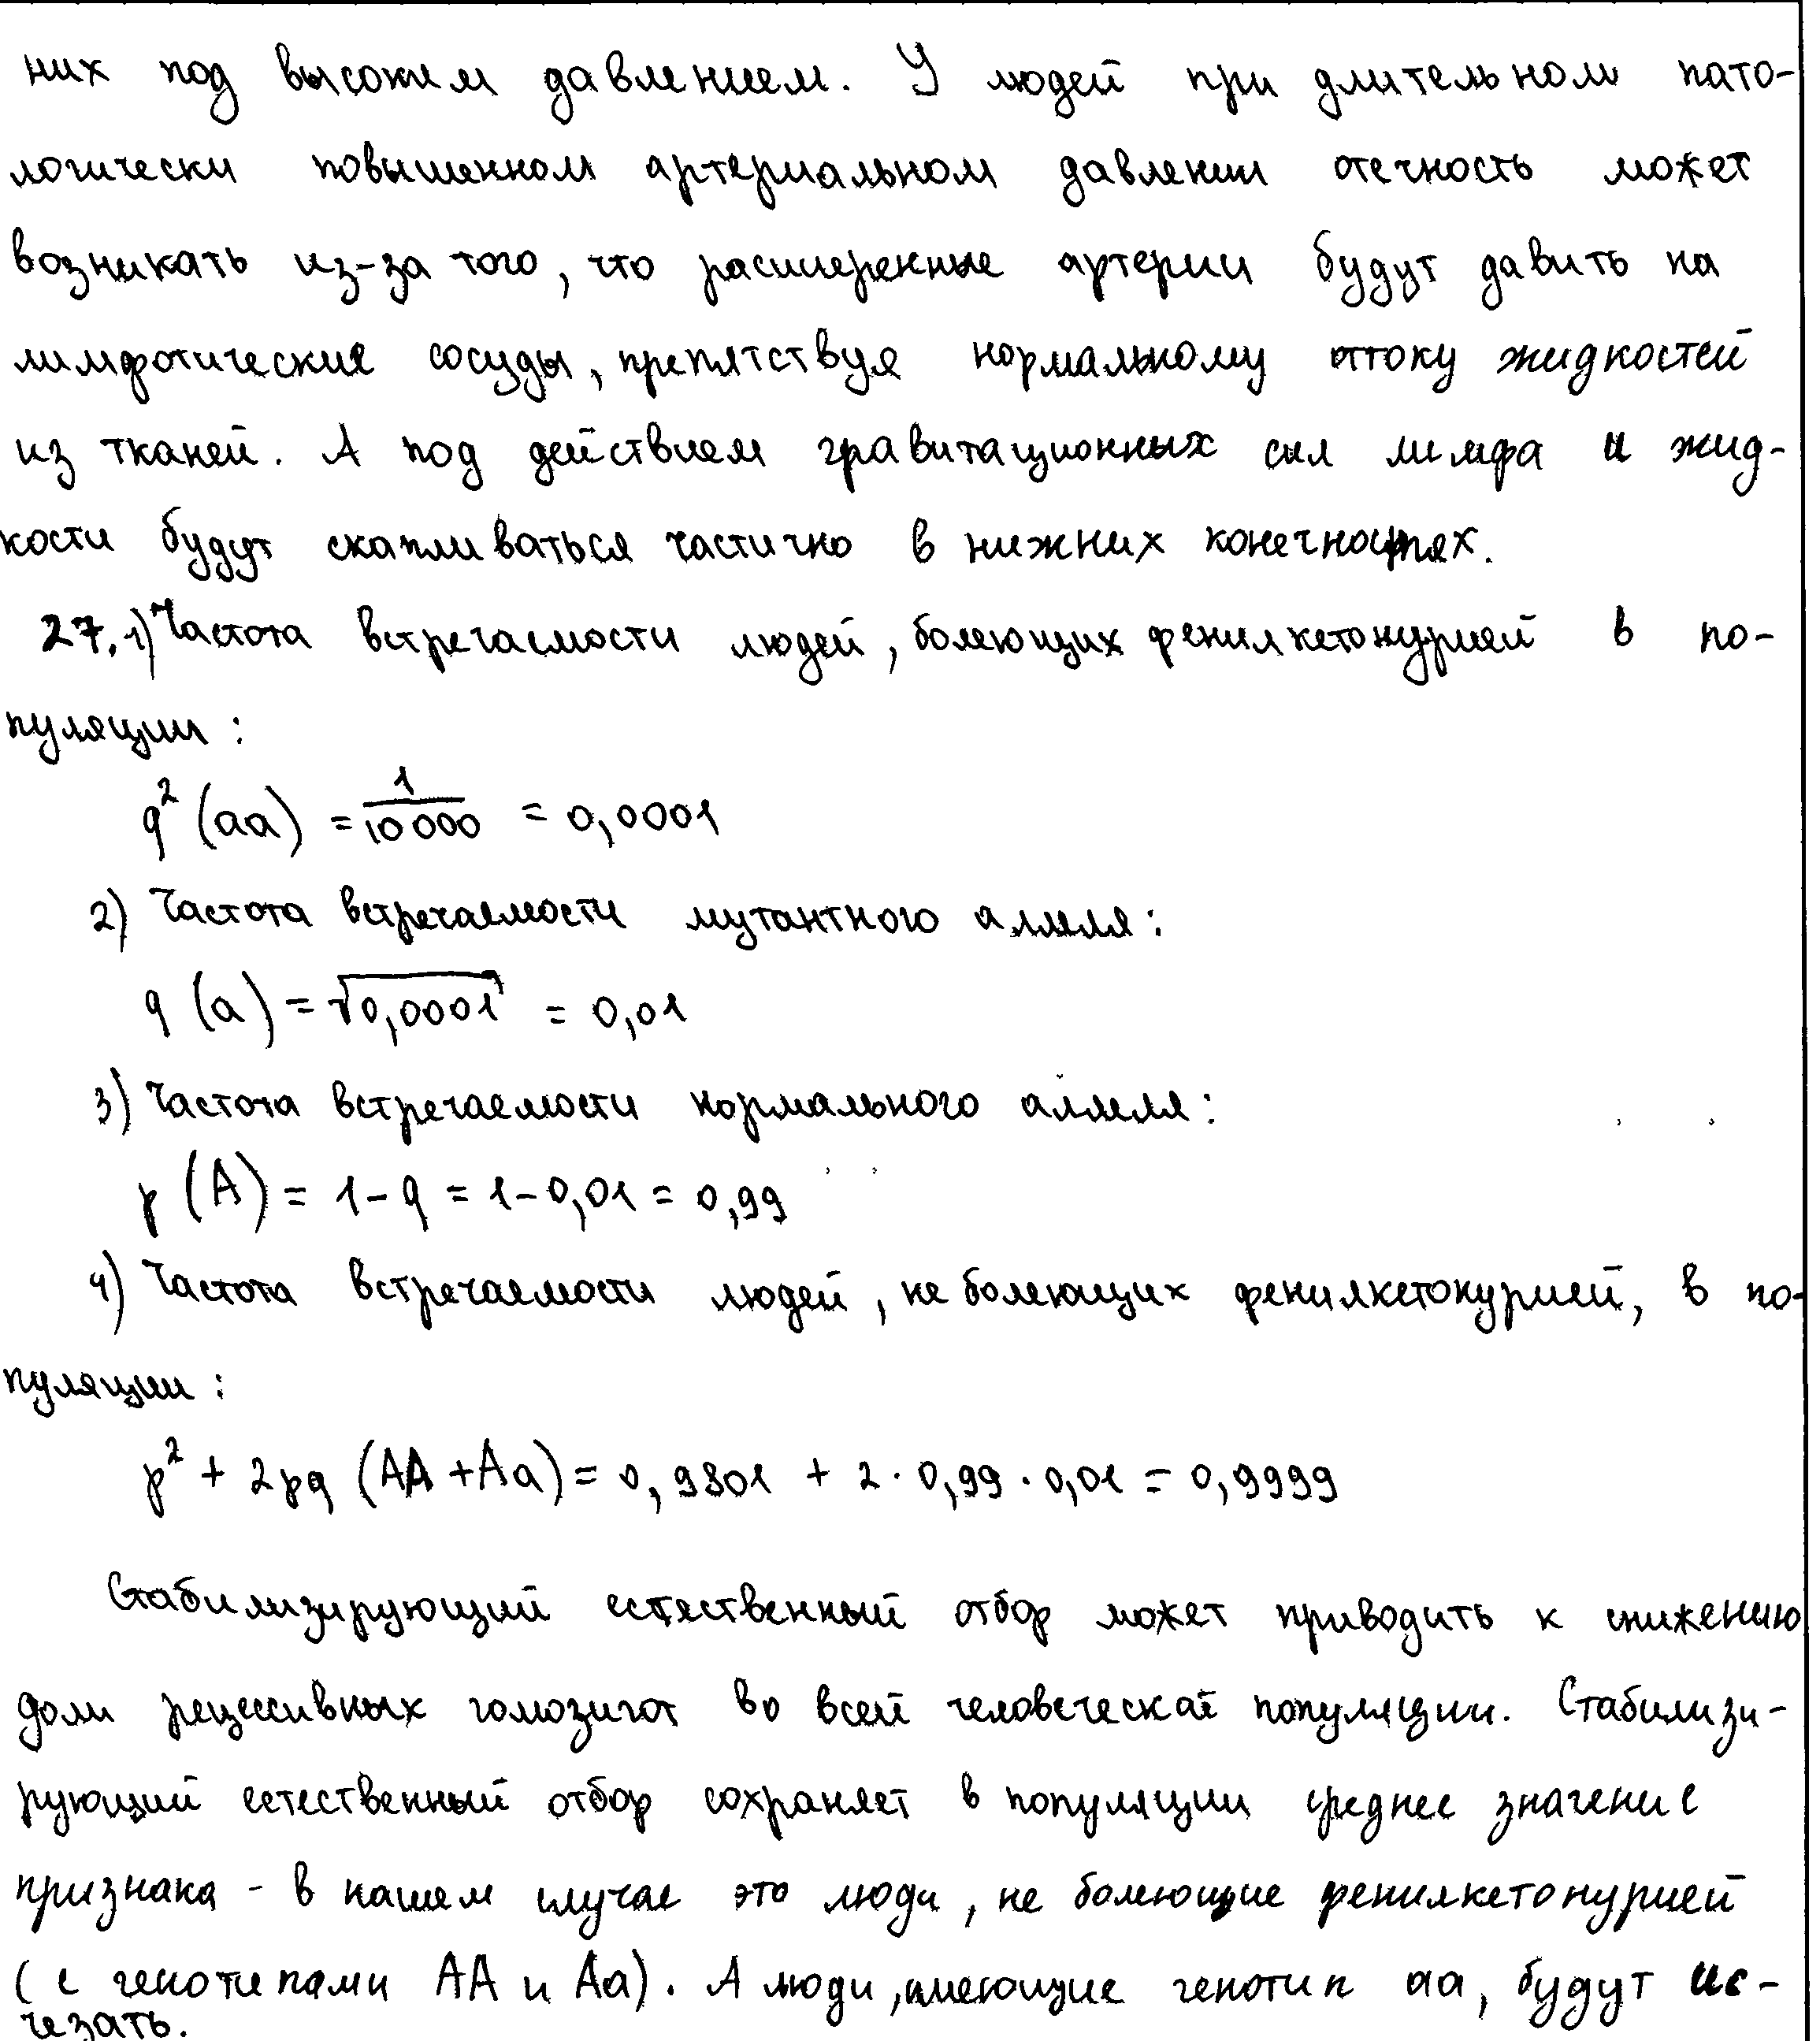 них под высоким давлением. У людей при длительном пато-
логически повышенном артериальном давлении отечность может
возникать из-за того, что расширенные артерии будут давить на
лимфотические сосуды, препятствуя нормальному оттоку жидкостей
из тканей. А под действием гравитационных сил лимфа и жид-
кости будут скапливаться частично в нижних конечностях.
27. 1) Частота встречаемости людей, болеющих фенилкетонурией в по-
пуляции:
q² (aa) = 1/10000 = 0,0001
2) Частота встречаемости мутантного аллеля:
q (a) = √0,0001 = 0,01
3) Частота встречаемости нормального аллеля:
p (A) = 1 - q = 1 - 0,01 = 0,99
4) Частота встречаемости людей, не болеющих фенилкетонурией, в по-
пуляции:
p² + 2pq (AA + Aa) = 0,9801 + 2 · 0,99 · 0,01 = 0,9999
Стабилизирующий естественный отбор может приводить к снижению
доли рецессивных гомозигот во всей человеческой популяции. Стабилизи-
рующий естественный отбор сохраняет в популяции среднее значение
признака - в нашем случае это люди, не болеющие фенилкетонурией
(с генотипами AA и Aa). А люди, имеющие генотип aa, будут ис-
чезать.